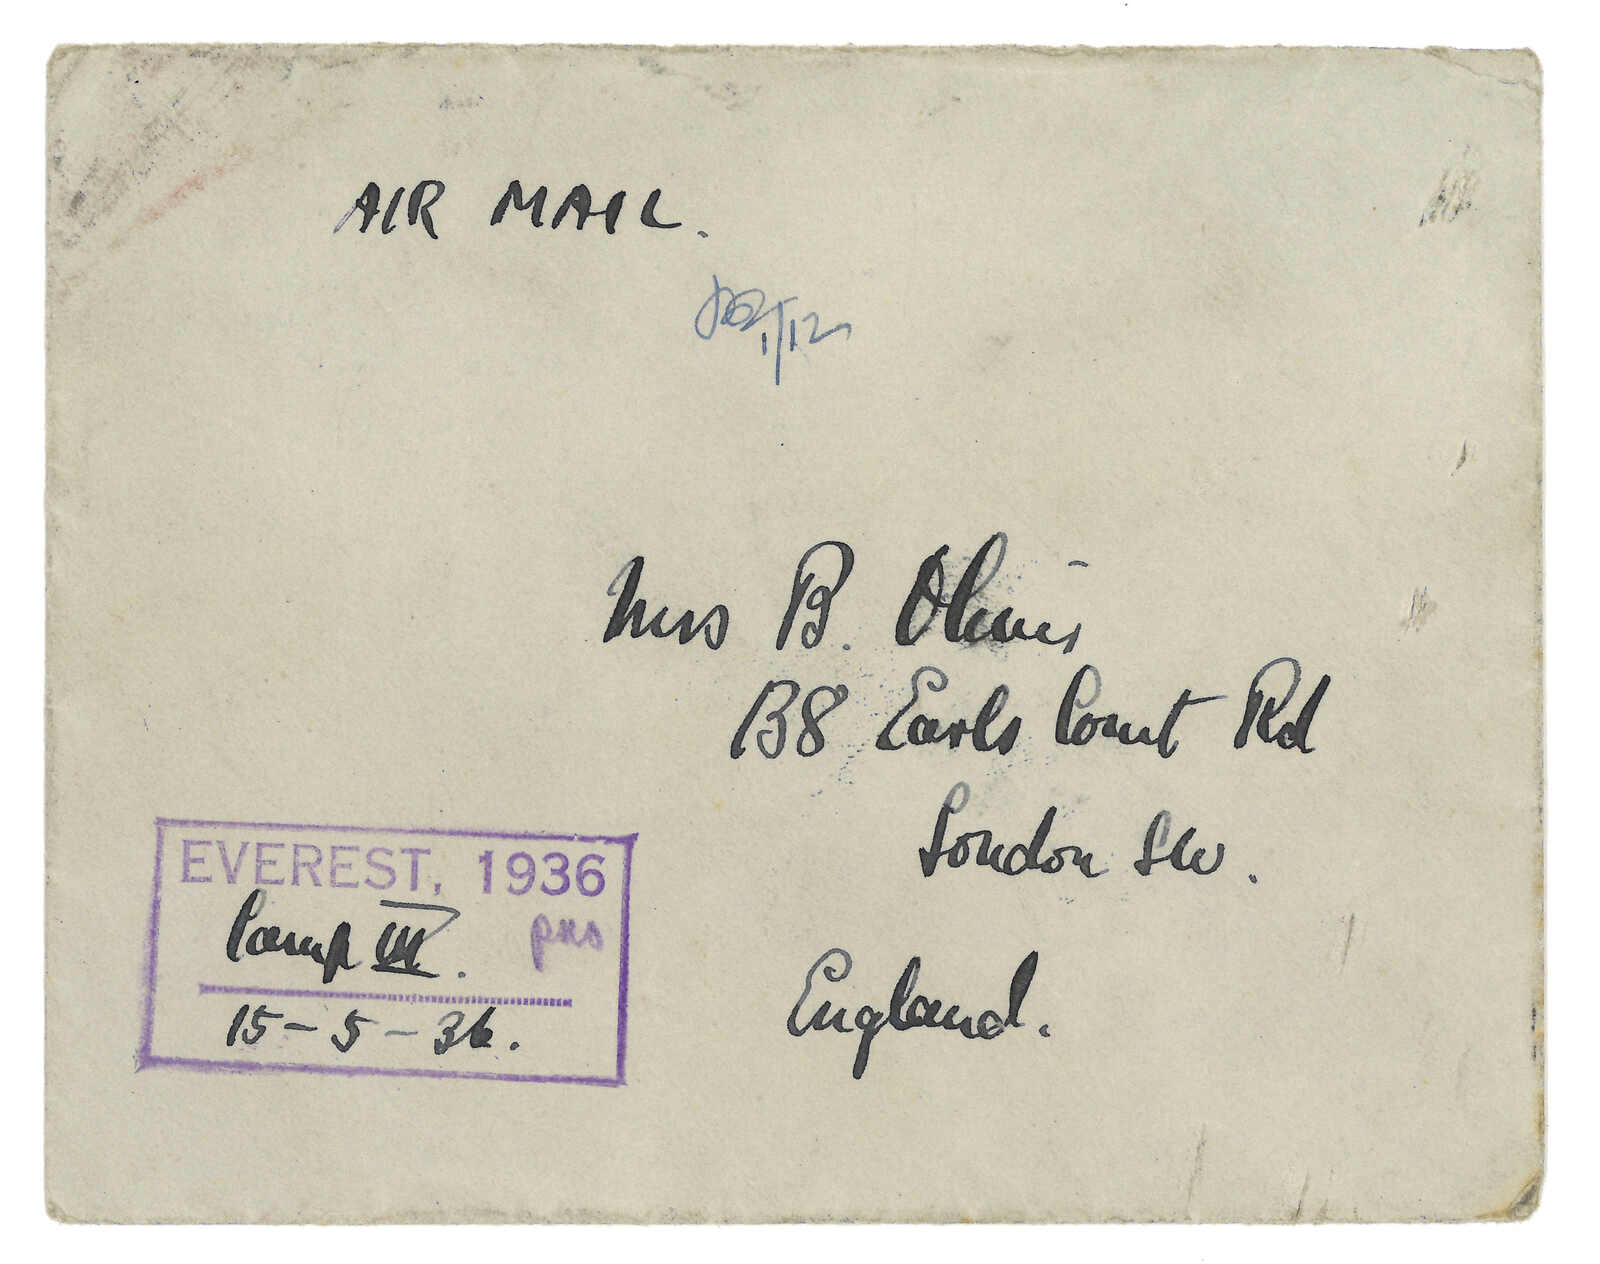 AIR MAIL.
Mrs B.
138 Earls Court Rd
London SW.
England.
EVEREST, 1936
Camp III.
15-5-36.